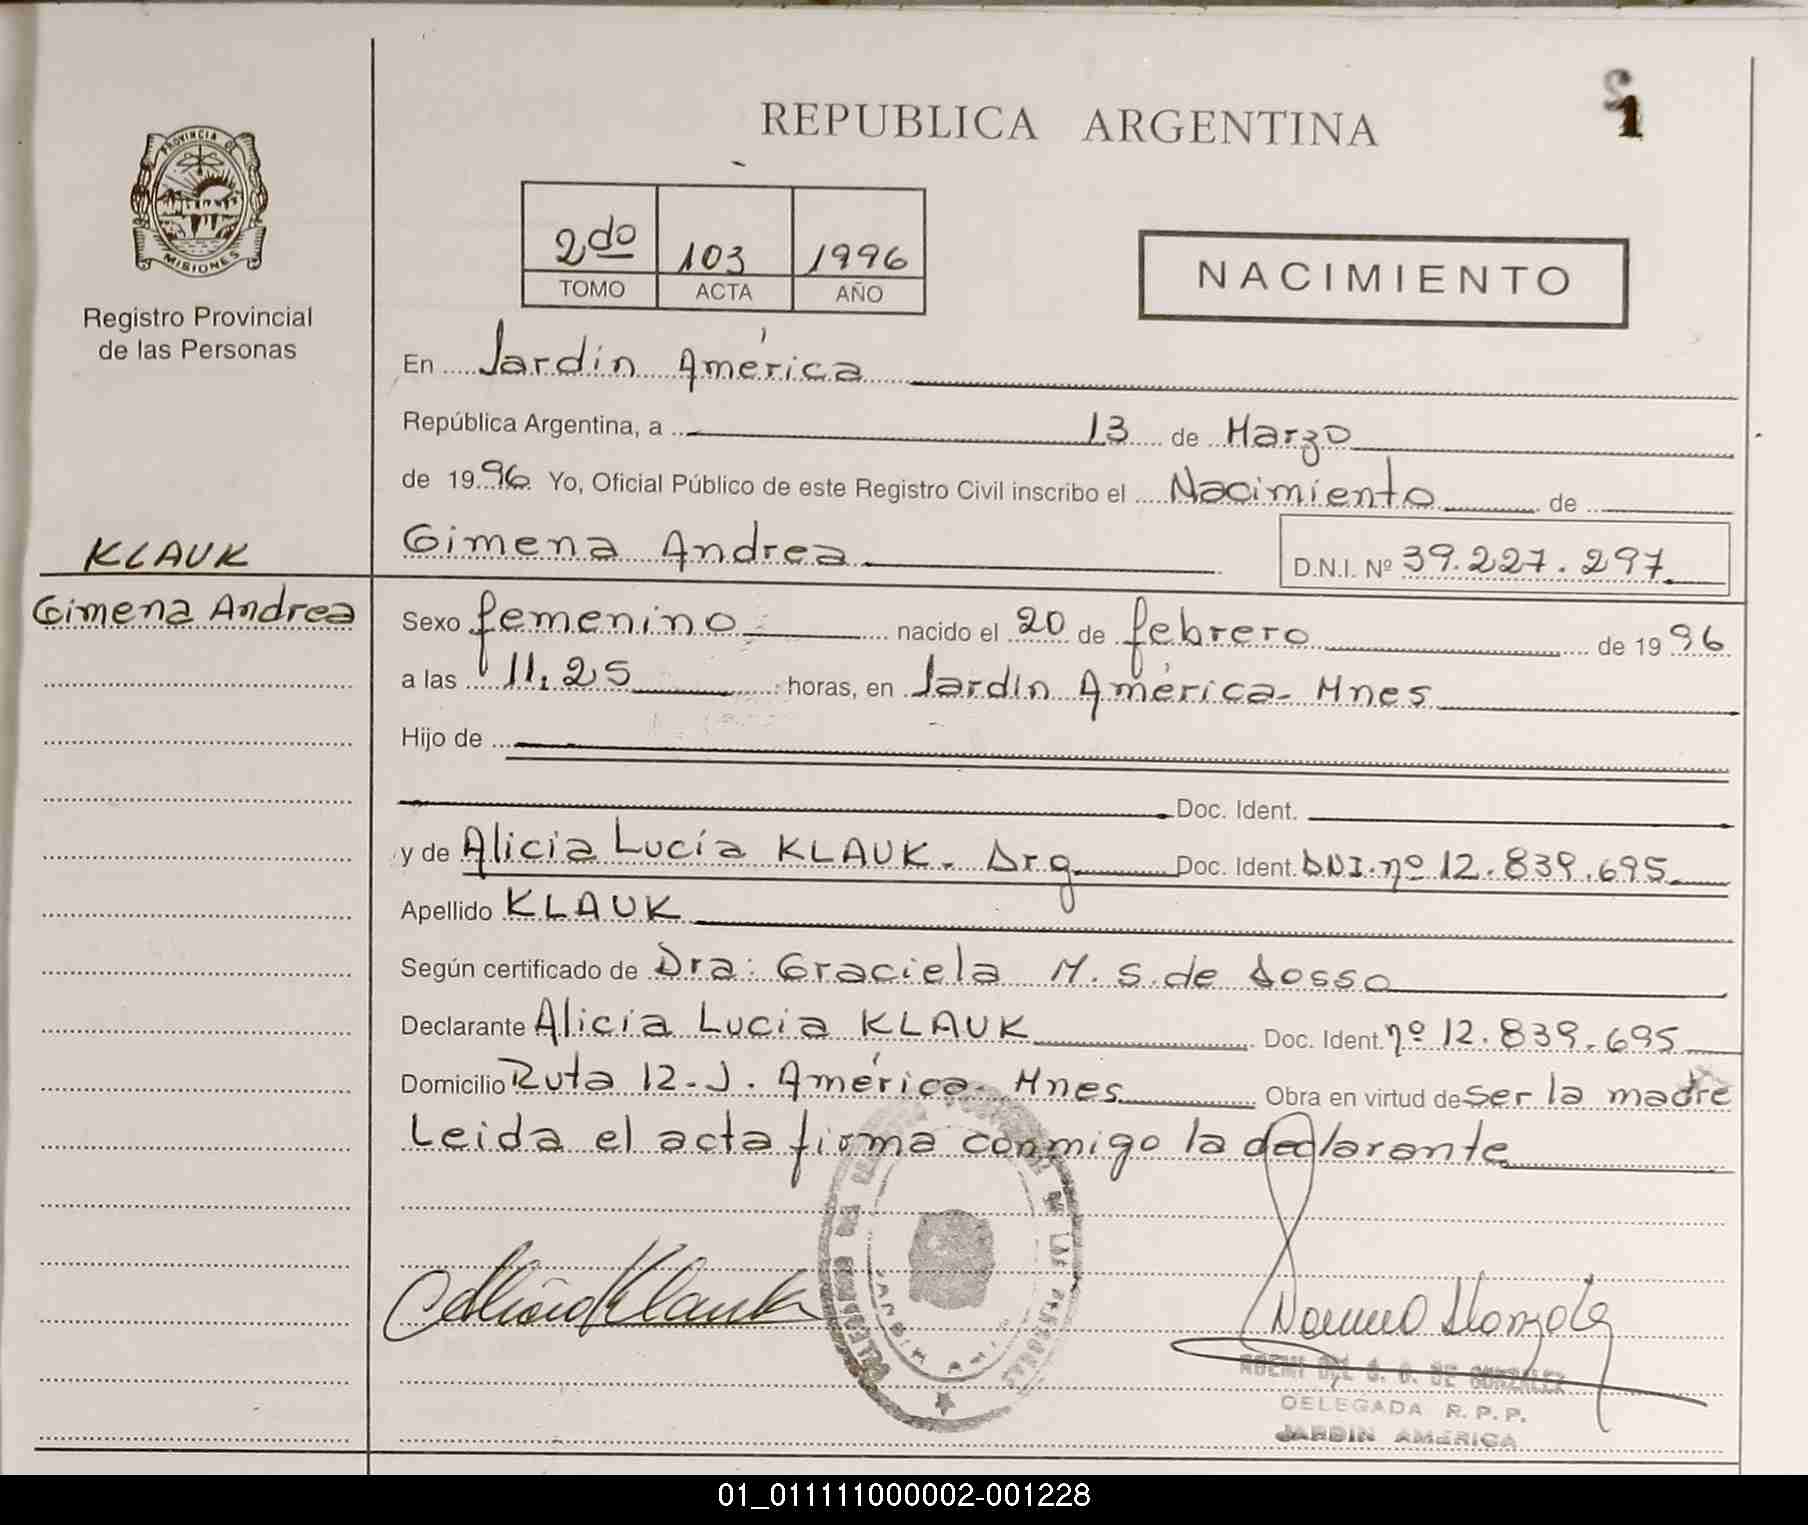 REPUBLICA ARGENTINA
1
PROVINCIA DE
MISIONES
Registro Provincial
de las Personas
2do 103 1996
TOMO ACTA AÑO
NACIMIENTO
En Jardín América
República Argentina, a 13 de Marzo
de 1996 Yo, Oficial Público de este Registro Civil inscribo el Nacimiento de
Gimena Andrea D.N.I. Nº 39.227.297
KLAUK
Gimena Andrea
Sexo femenino nacido el 20 de febrero de 1996
a las 11,25 horas, en Jardín América- Mnes
Hijo de
Doc. Ident.
y de Alicia Lucía KLAUK- Arg Doc. Ident. DNI.nº 12.839.695
Apellido KLAUK
Según certificado de Dra: Graciela M. S. de Sosso
Declarante Alicia Lucia KLAUK Doc. Ident. nº 12.839.695
Domicilio Ruta 12- J. América- Mnes Obra en virtud de ser la madre
Leida el acta firma conmigo la declarante
Alicia Klauk
DE GONZALEZ
DELEGADA R.P.P.
JARDIN AMERICA
01_011111000002-001228